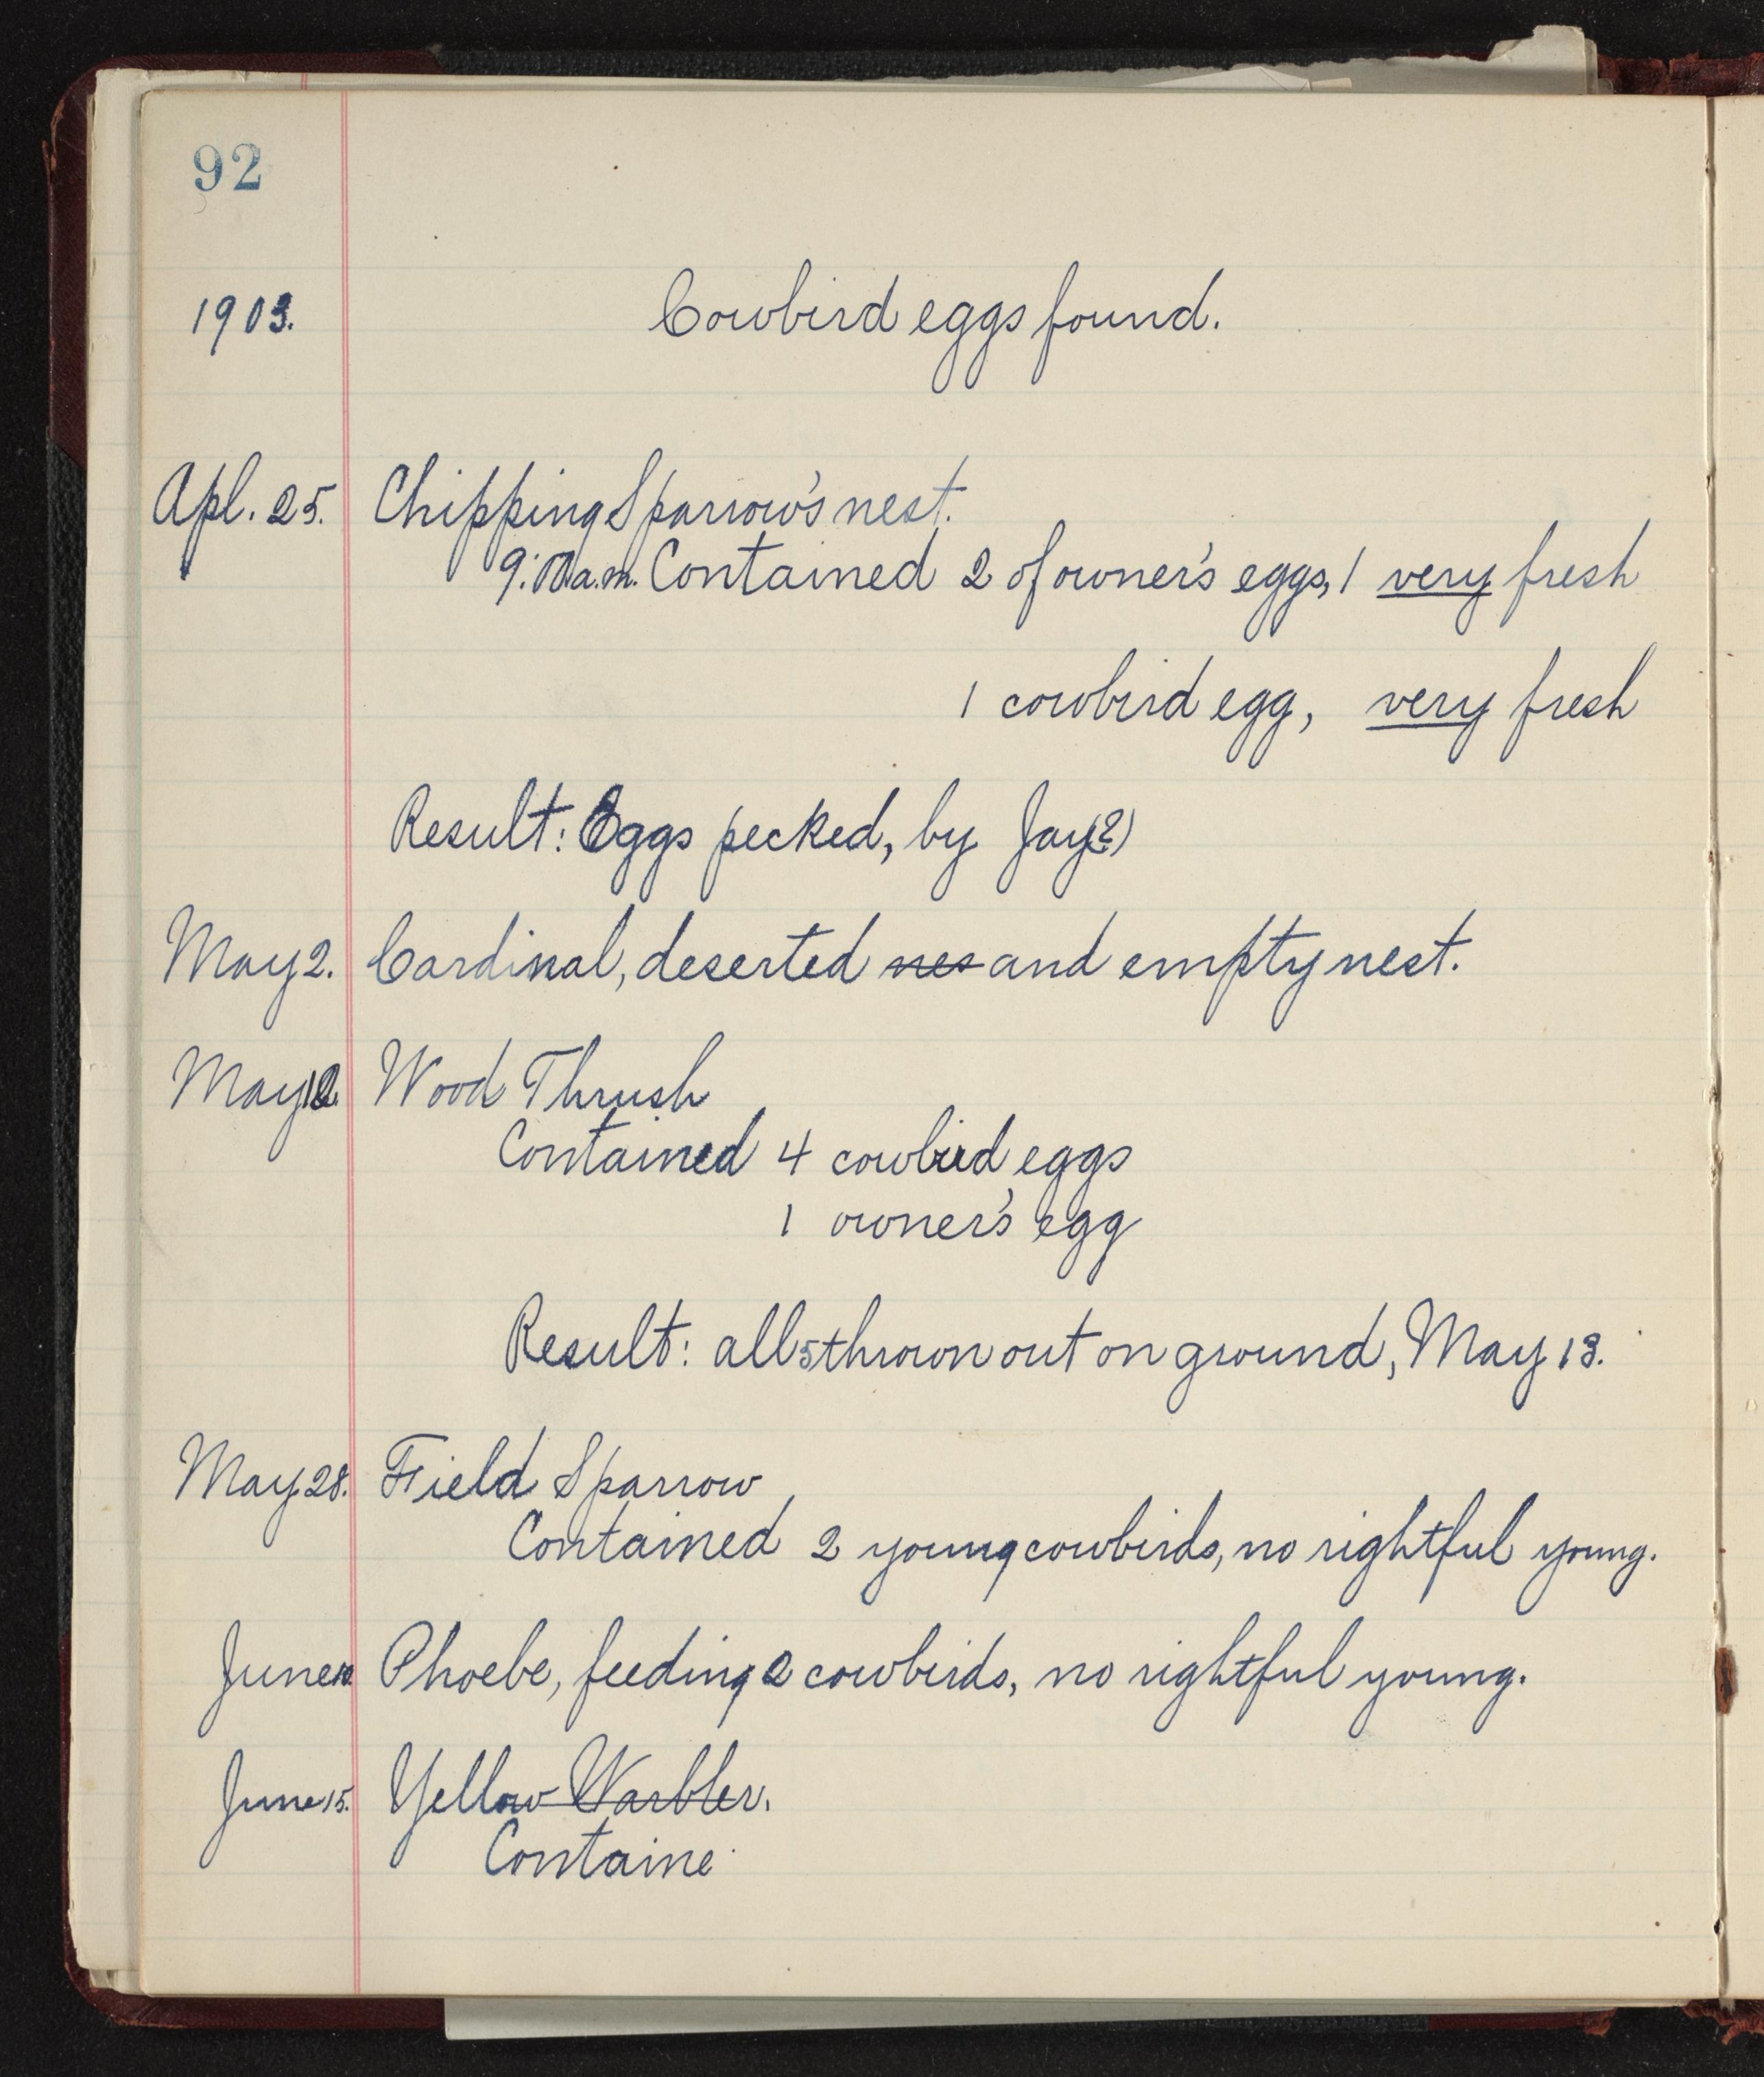 92
1903. Cowbird eggs found.
Apl. 25. Chipping Sparrow's nest.
9:00 a.m. Contained 2 of owner's eggs, 1 very fresh
1 cowbird egg, very fresh
Result: Eggs pecked, by Jay(?)
May 2. Cardinal, deserted nes and empty nest.
May 12. Wood Thrush
Contained 4 cowbird eggs
1 owner's egg
Result: all 5 thrown out on ground, May 13.
May 28. Field Sparrow
Contained 2 young cowbirds, no rightful young.
June Phoebe, feeding 2 cowbirds, no rightful young.
June 15. Yellow Warbler.
Containe